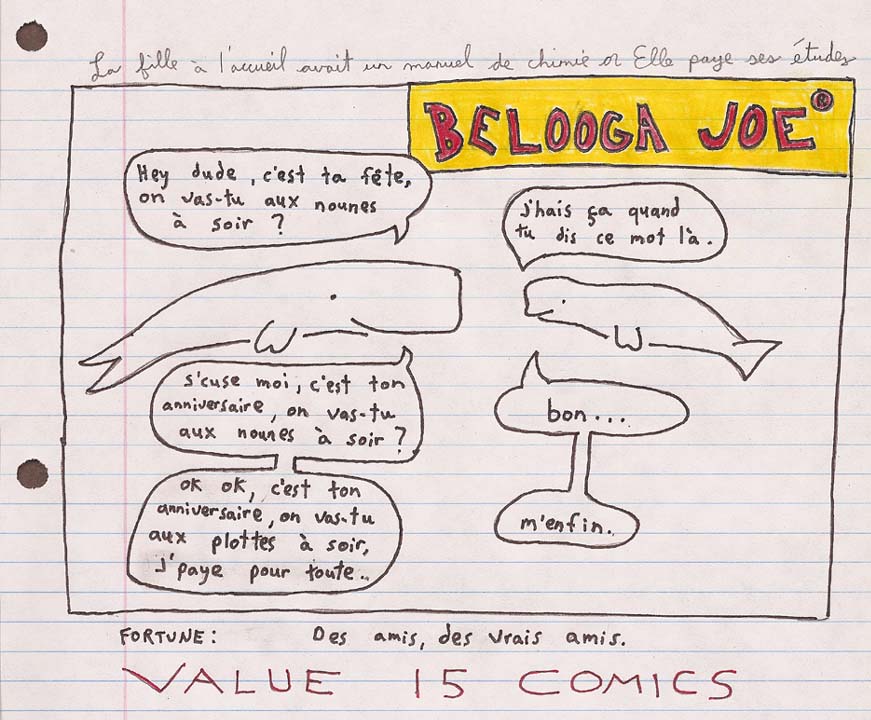 La fille à l'accueil avait un manuel de chimie or Elle paye ses études
BELOOGA JOE®
Hey dude, c'est ta fête,
on vas-tu aux nounes
à soir ?
J'hais ça quand
tu dis ce mot là.
s'cuse moi, c'est ton
anniversaire, on vas-tu
aux nounes à soir ?
bon...
OK OK, c'est ton
anniversaire, on vas-tu
aux plottes à soir,
J'paye pour toute..
m'enfin.
FORTUNE: Des amis, des vrais amis.
VALUE 15 COMICS